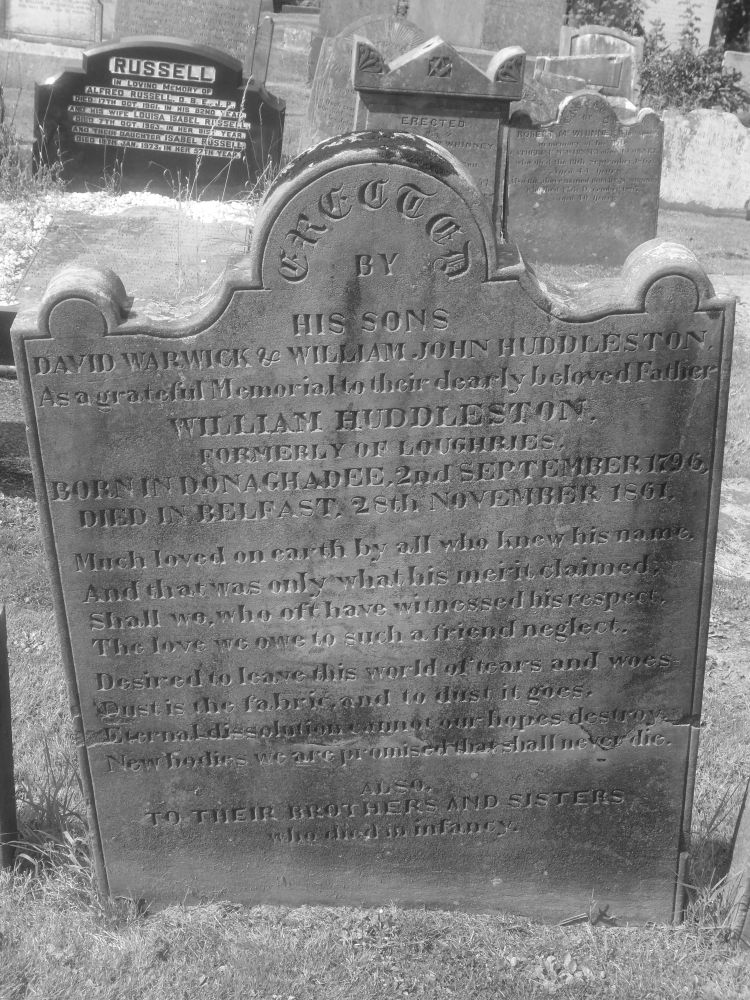 RUSSELL
IN LOVING MEMORY OF
ALFRED RUSSELL, O.B.E., J.P.
DIED 17TH OCT. 1961, IN HIS 82ND YEAR
HIS WIFE LOUISA ISABEL RUSSELL
DIED OCT. 1963, IN HER 81ST YEAR
AND THEIR DAUGHTER ISABEL RUSSELL
DIED 18TH JAN. 1973, IN HER 57TH YEAR.
ERECTED
ERECTED
BY
HIS SONS
DAVID WARWICK & WILLIAM JOHN HUDDLESTON,
As a grateful Memorial to their dearly beloved Father
WILLIAM HUDDLESTON.
FORMERLY OF LOUGHRIES.
BORN IN DONAGHADEE, 2nd SEPTEMBER 1796,
DIED IN BELFAST, 28th NOVEMBER 1861,
Much loved on earth by all who knew his name,
And that was only what his merit claimed;
Shall we, who oft have witnessed his respect,
The love we owe to such a friend neglect.
Desired to leave this world of tears and woes
Dust is the fabric, and to dust it goes,
Eternal dissolution cannot our hopes destroy,
New bodies we are promised that shall never die.
ALSO,
TO THEIR BROTHERS AND SISTERS
who died in infancy.